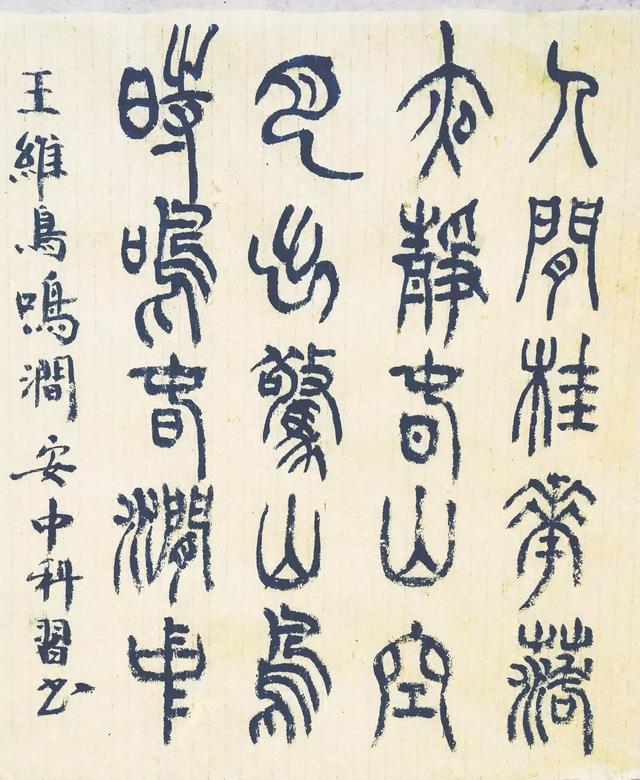 人間桂花落
夜靜春山空
月出驚山鳥
時鳴春澗中
王維鳥鳴澗安中科習书